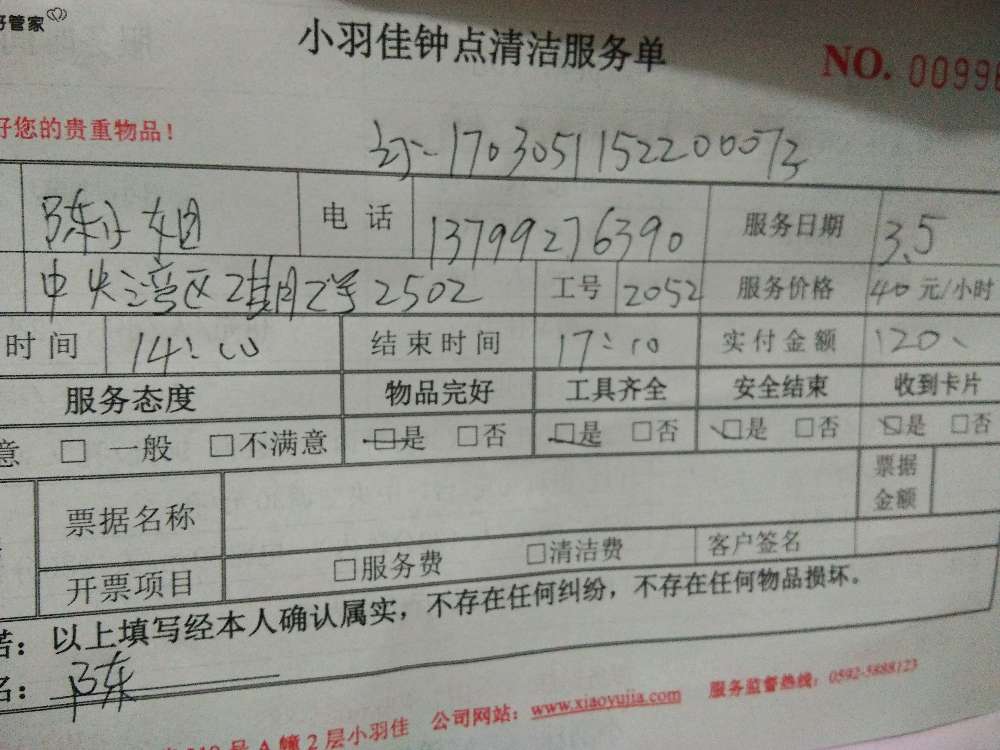 好管家
小羽佳钟点清洁服务单
NO. 00996
好您的贵重物品！
订 17030511522200073
陈小姐 电话 13799276390 服务日期 3.5
中央湾区2期2号2502 工号 2052 服务价格 40元/小时
时间 14:00 结束时间 17:10 实付金额 120
服务态度 物品完好 工具齐全 安全结束 收到卡片
意 □一般 □不满意 □是 □否 □是 □否 □是 □否 □是 □否
票据名称 票据金额
开票项目 □服务费 □清洁费 客户签名
诺：以上填写经本人确认属实，不存在任何纠纷，不存在任何物品损坏。
名：陈
号A幢2层小羽佳 公司网站：www.xiaoyujia.com 服务监督热线：0592-5888123